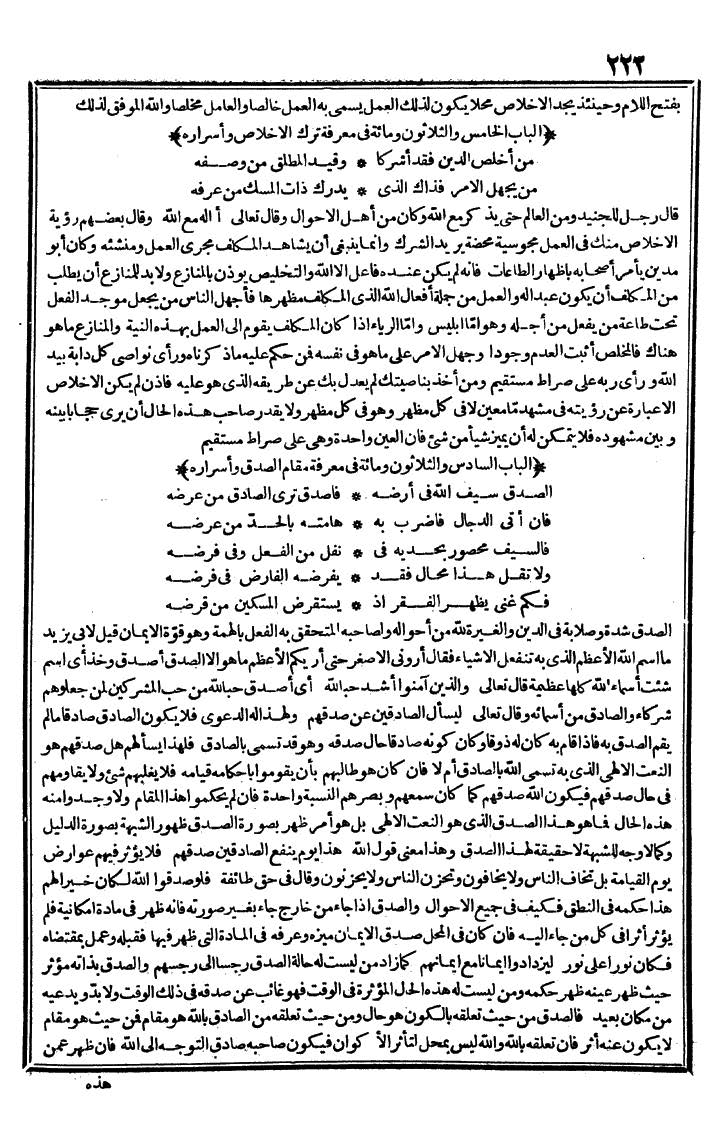 ٢٢٢
بفتح اللام وحينئذ يجد الاخلاص محلا يكون لذلك العمل يسمى به العمل خالصا والعامل مخلصا والله الموفق لذلك
﴿الباب الخامس والثلاثون ومائة في معرفة ترك الاخلاص وأسراره﴾
من أخلص الدين فقد أشركا * وقيد المطلق من وصفه
من يجهل الامر فذاك الذى * يدرك ذات المسك من عرفه
قال رجل للجنيد ومن العالم حتى يذكر مع الله وكان من أهل الاحوال وقال تعالى أاله مع الله وقال بعضهم رؤية
الاخلاص منك فى العمل مجوسية محضة يريد الشرك وانما ينبغى أن يشاهد المكلف مجرى العمل ومنشئه وكان أبو
مدين يأمر أصحابه باظهار الطاعات فانه لم يكن عنده فاعل الا الله والتخليص يوذن بالمنازع ولا بد للمنازع أن يطلب
من المكلف أن يكون عبدا له والعمل من جملة أفعال الله الذى المكلف مظهرها فأجهل الناس من يجعل موجد الفعل
تحت طاعة من يفعل من أجله وهو امّا ابليس وامّا الرياء اذا كان المكلف يقوم الى العمل بهذه النية والمنازع ماهو
هناك فالمخلص أثبت العدم وجودا وجهل الامر على ماهو فى نفسه فن حكم عليه ماذكرناه ورأى نواصى كل دابة بيد
الله ورأى ربه على صراط مستقيم ومن أخذ بناصيتك لم يعدل بك عن طريقه الذى هو عليه فاذن لم يكن الاخلاص
الا عبارة عن رؤيته فى مشهد مّا معين لا فى كل مظهر وهو فى كل مظهر ولا يقدر صاحب هذه الحال أن يرى حجابا بينه
وبين مشهوده فلا يتمكن له أن يميز شيأ من شئ فان العين واحدة وهى على صراط مستقيم
﴿الباب السادس والثلاثون ومائة فى معرفة مقام الصدق وأسراره﴾
الصدق سيف الله فى أرضه * فاصدق ترى الصادق من عرضه
فان أتى الدجال فاضرب به * هامته بالحدّ من عرضه
فالسيف محصور بحديه فى * نفل من الفعل وفى فرضه
ولا تقل هذا محال فقد * يفرضه الفارض فى فرضه
فكم غنى يظهر الفقر اذ * يستقرض المسكين من قرضه
الصدق شدة وصلابة فى الدين والغيرة لله من أحواله ولصاحبه المتحقق به الفعل بالهمة وهو قوّة الايمان قيل لابى يزيد
ما اسم الله الأعظم الذى به تنفعل الاشياء فقال أرونى الاصغر حتى أريكم الأعظم ماهو الا الصدق أصدق وخذ أى اسم
شئت أسماء الله كلها عظيمة قال تعالى والذين آمنوا أشد حبا لله أى أصدق حبا لله من حب المشركين لمن جعلوهم
شركاء والصادق من أسمائه وقال تعالى ليسأل الصادقين عن صدقهم ولهذا له الدعوى فلا يكون الصادق صادقا مالم
يقم الصدق به فاذا قام به كان له ذوقا وكان كونه صادقا حال صدقه وهو قد تسمى بالصادق فلهذا يسألهم هل صدقهم هو
النعت الالهى الذى به تسمى الله بالصادق أم لا فان كان هو طالبهم بأن يقوموا باحكامه قيامه فلا يغلبهم شئ ولا يقاومهم
فى حال صدقهم فيكون الله صدقهم كما كان سمعهم وبصرهم النسبة واحدة فان لم يحكموا هذا المقام ولا وجدوا منه
هذه الحال فما هو هذا الصدق الذى هو النعت الالهى بل هو أمر ظهر بصورة الصدق ظهور الشبهة بصورة الدليل
وكما لا وجه للشبهة لا حقيقة لهذا الصدق وهذا معنى قول الله هذا يوم ينفع الصادقين صدقهم فلا يؤثر فيهم عوارض
يوم القيامة بل تخاف الناس ولا يخافون وتحزن الناس ولا يحزنون وقال فى حق طائفة فلو صدقوا الله لكان خيرا لهم
هذا حكمه فى النطق فكيف فى جميع الاحوال والصدق اذا جاء من خارج جاء بغير صورته فانه ظهر فى مادة امكانية فلم
يؤثر أثرا فى كل من جاء اليه فان كان فى المحل صدق الايمان ميزه وعرفه فى المادة التى ظهر فيها فقبله وعمل بمقتضاه
فكان نورا على نور ليزدادوا ايمانا مع ايمانهم كما زاد من ليست له حالة الصدق رجسا الى رجسهم والصدق بذاته مؤثر
حيث ظهر عينه ظهر حكمه ومن ليست له هذه الحال المؤثرة فى الوقت فهو غائب عن صدقه فى ذلك الوقت ولا بدّ ويدعيه
من مكان بعيد فالصدق من حيث تعلقه بالكون هو حال ومن حيث تعلقه من الصادق بالله هو مقام فمن حيث هو مقام
لا يكون عنه أثر فان تعلقه بالله والله ليس بمحل لتأثر الأكوان فيكون صاحبه صادق التوجه الى الله فان ظهر عمن
هذه